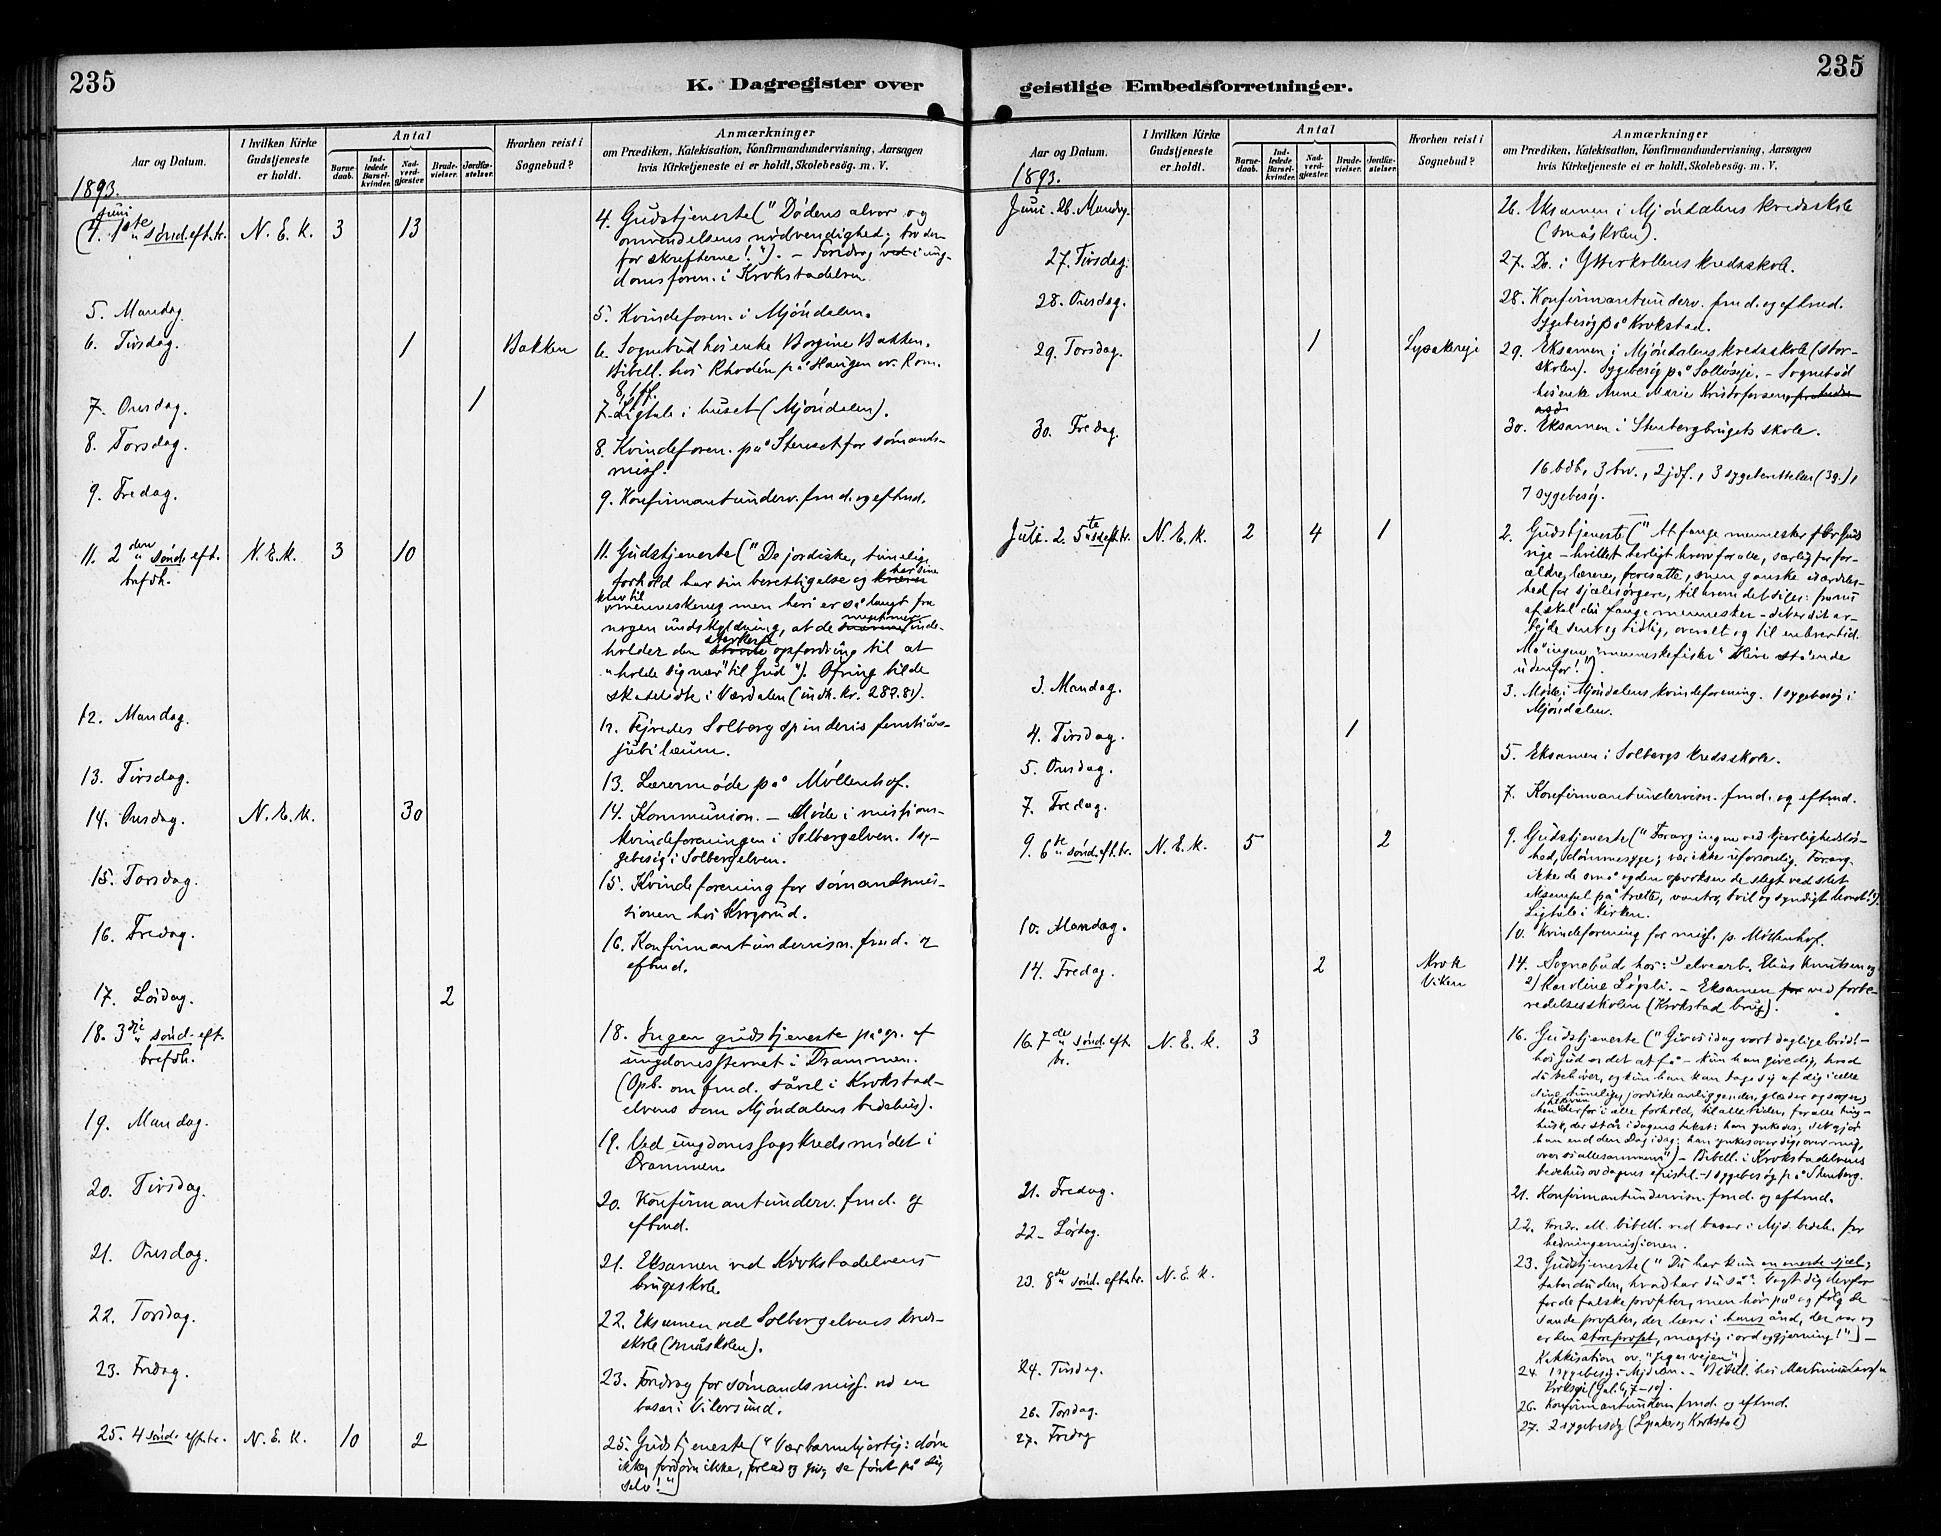 235
K. Dagregister over
Aar og Datum.
I hvilken Kirke
Gudstjeneste
er holdt.
Antal
Barne-
daab.
Ind-
ledede
Barsel-
kvinder.
Nad-
verd-
gjæster
Brude-
vielser.
Jordfæ-
stelser.
Hvorhen reist i
Sognebud?
Anmærkninger
om Prædiken, Katekisation, Konfirmandundervisning, Aarsagen
hvis Kirketjeneste ei er holdt, Skolebesøg. m. V.
1893.
Juni
4. 1ste sønd. eft. tr. N. E. K. 3 13
4. Gudstjeneste ("Dødens alvor og
omvendelsens nødvendighed; tro der-
for skrifterne!"). – Foredrag ved i ung-
domsforen. i Krokstadelven.
5. Mandag
5. Kvindeforen. i Mjöndalen.
6. Tirsdag. 1 Bakken
6. Sognebud hos enke Borgine Bakken.
Bibell. hos Rhodén på Haugen ov. Rom.
8, 1 ff.
7. Onsdag. 1
7. Ligtale i huset (Mjöndalen).
8. Torsdag.
8. Kvindeforen. på Stenset for sömands-
miss.
9. Fredag.
9. Konfirmantunderv. fmd. og eftmd.
11. 2den sönd. eft. N. E. K. 3 10
trefdh.
11. Gudstjeneste ("De jordiske, timelige
forhold har sin berettigelse og kræver har sine
krav til
menneskene, men heri er så langt fra
nogen undskyldning, at de meget mer inde-
holder den stærkeste opfordring til at
"holde sig nær" til Gud"). Ofring til de
skadelidte i Værdalen (indk. kr. 287.81).
12. Mandag.
12. Fejredes Solberg spinderis femtiårs-
jubilæum.
13. Tirsdag.
13. Lærermöde på Möllenhof.
14. Onsdag. N. E. K. 30
14. Kommunion. – Möde i missions-
kvindeforeningen i Solbergelven. 1 sy-
gebesög i Solbergelven.
15. Torsdag.
15. Kvindeforening for sömandsmis-
sionen hos Krogsrud.
16. Fredag.
16. Konfirmantundervisn. fmd. &
eftmd.
17. Lördag. 2
18. 3die sönd. eft.
trefdh.
18. Ingen gudstjeneste på gr. af
ungdomsstevnet i Drammen.
(Opb. om fmd. såvel i Krokstad-
elvens som Mjöndalens bedehus).
19. Mandag.
19. Ved ungdomssagskredsmödet i
Drammen.
20. Tirsdag.
20. Konfirmantunderv. fmd. og
eftmd.
21. Onsdag.
21. Eksamen ved Krokstadelvens
brugsskole.
22. Torsdag.
22. Eksamen ved Solbergelvens kreds-
skole (småskolen).
23. Fredag.
23. Foredrag for sömandsmiss. ved en
basar i Vikersund.
25. 4 sönd. eft. tr. N. E. K. 10 2
25. Gudstjeneste ("Vær barmhjertig: döm
ikke, fordöm ikke, forlad og giv, se först på dig
selv!")
235
geistlige Embedsforretninger.
Aar og Datum.
I hvilken Kirke
Gudstjeneste
er holdt.
Antal
Barne-
daab.
Ind-
ledede
Barsel-
kvinder.
Nad-
verd-
gjæster
Brude-
vielser.
Jordfæ-
stelser.
Hvorhen reist i
Sognebud?
Anmærkninger
om Prædiken, Katekisation, Konfirmandundervisning, Aarsagen
hvis Kirketjeneste ei er holdt, Skolebesøg. m. V.
1893.
Juni. 26. Mandag.
26. Eksamen i Mjöndalens kredsskole
(småskolen).
27. Tirsdag.
27. Do. i Ytterkollens kredsskole.
28. Onsdag.
28. Konfirmantunderv. fmd. og eftmd.
Sygebesög på Krokstad.
29. Torsdag. 1 Lysakereje
29. Eksamen i Mjöndalens kredsskole (stor-
skolen). Sygebesög på Solløseje. – Sognebud
hos enke Anne Marie Kristoffersen,
30. Fredag.
30. Eksamen i Stenbergbrugets skole.
16 bdb, 3 brv., 2 jdf., 3 sygeberettelser (3 g.),
7 sygebesög.
Juli. 2. 5te sd eft. tr. N. E. K. 2 4 1
2. Gudstjeneste ("At fange mennesker f[or] Guds
rige – hvilket herligt hverv for alle, særlig for for-
ældre, lærere, foresatte, men ganske særdeles-
hed for sjælesörgere, til hvem det siges: fra nu
af skal du fange mennesker – det er dit ar-
bejde sent og tidlig, overalt og til enhver tid.
Må ingen "menneskefisker" blive stående
udenfor!")
3. Mandag.
3. Möde i Mjöndalens kvindeforening. 1 sygebesög i
Mjöndalen.
4. Tirsdag. 1
5. Onsdag.
5. Eksamen i Solbergs kredsskole.
7. Fredag.
7. Konfirmantundervisn. fmd. og eftmd.
9. 6te sönd. eft. tr. N. E. K. 5 2
9. Gudstjeneste ("Forarg ingen ved kjærlighedslös-
hed, dömmesyge; vær ikke uforsonlig. Forarg
ikke de små og den opvoksende slegt ved slet
eksempel på trætte, vantro, tvil og syndigt levnet!").
Ligtale i kirken.
10. Mandag.
10. Kvindeforening for miss. p. Möllenhof.
14. Fredag. 2 Krok
Viken
14. Sognebud hos: 1) elvearb. Elias Knutsen og
2) Karoline Lögsli. – Eksamen for ved forbe-
redelsesskolen (Krokstad brug).
16. 7de sönd. eft. N. E. K. 3
tr.
16. Gudstjeneste ("Giv os idag vort daglige bröd!
hos Gud er det at få – kun han give dig, hvad
du behöver, og kun han kan tage sig af dig i alle
dine timelige, jordiske anliggender, glæder og sorger;
hen derfor i alle forhold, til alle tider, for alle ting –
husk, der står i dagens tekst: han ynkedes; det gjör
han end den dag idag: han ynkes over dig, over mig,
over os allesammen") – Bibell. i Krokstadelvens
bedehus ov. dagens epistel. – 1 sygebesög på Stenberg.
21. Fredag.
21. Konfirmantundervisn. fmd. og eftmd.
22. Lördag.
22. Foredr. ell. bibell. ved basar i Mjd. bedeh. for
hedningemissionen.
23. 8de sönd. eft. tr. N. E. K.
23. Gudstjeneste ("Du har kun en eneste sjæl;
taber du den, hvad har du så? Vogt dig derfor
for de falske profeter, men hör på og fölg de
sande profeter, der lærer i hans ånd, der var og
er den store profet, mægtig i ord og gjerning!") –
Katekisation ov. "Jeg er vejen")
24. Tirsdag.
24. 1 sygebesög i Mjdalen. – Bibell. hos Martinius Larsen
Kroksejet (Gal. 6, 7–10).
26. Torsdag.
26. Konfirmantunderv. fmd. og eftmd.
27. Fredag
27. 2 sygebesög (Lysaker og Krokstad)